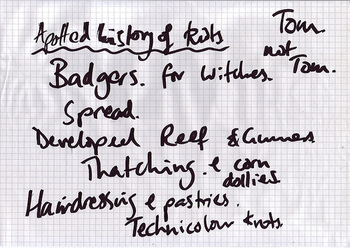 A potted history of knots
Tom
not
Tom.
Badgers. for witches.
Spread.
Developed Reef & Gunners
Thatching. & corn
dollies
Hairdressing & pastries.
Technicolour knots.